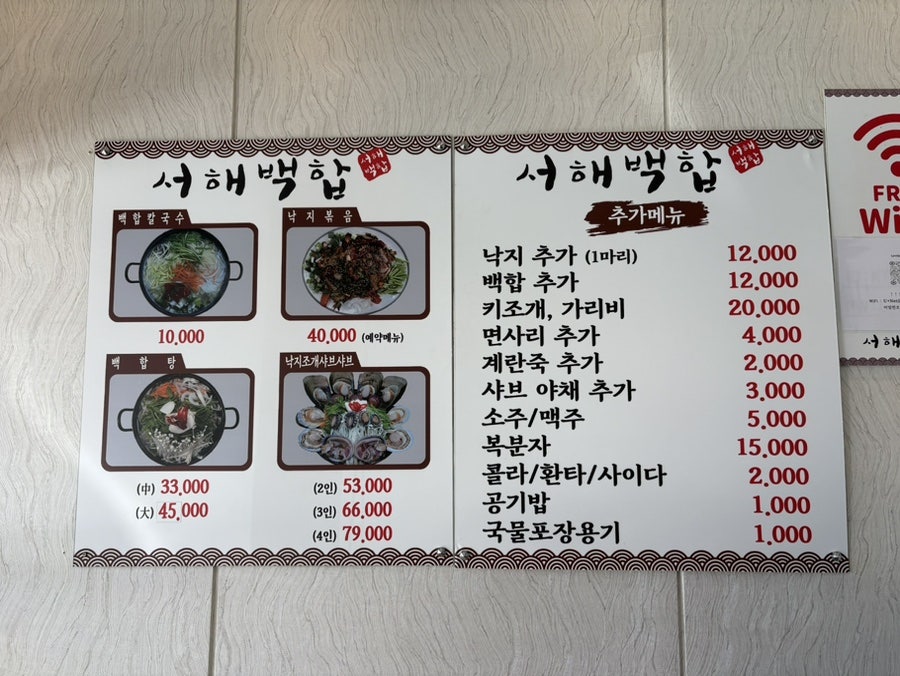 서해백합
서해
백합
백합칼국수
낙지볶음
10,000
40,000 (예약메뉴)
백합탕
낙지조개샤브샤브
(中) 33,000
(大) 45,000
(2인) 53,000
(3인) 66,000
(4인) 79,000
서해백합
서해
백합
추가메뉴
낙지 추가 (1마리) 12,000
백합 추가 12,000
키조개, 가리비 20,000
면사리 추가 4,000
계란죽 추가 2,000
샤브 야채 추가 3,000
소주/맥주 5,000
복분자 15,000
콜라/환타/사이다 2,000
공기밥 1,000
국물포장용기 1,000
FR
Wi
서해